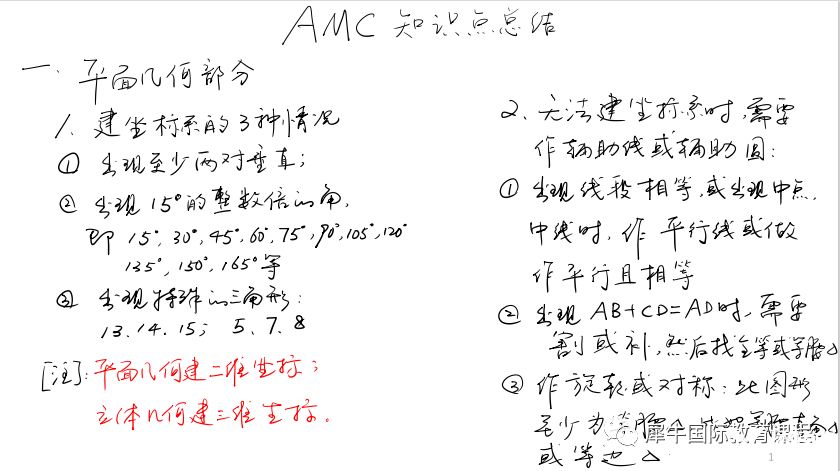 AMC 知识点总结
一、平面几何部分
1、建坐标系的3种情况
① 出现至少两对垂直;
② 出现15°的整数倍的角,
即 15°,30°,45°,60°,75°,90°,105°,120°
135°,150°,165°等
③ 出现特殊的三角形:
13、14、15; 5、7、8
[注]:平面几何建二维坐标;
立体几何建三维坐标.
2、无法建坐标系时,需要
作辅助线或辅助圆:
① 出现线段相等,或出现中点,
中线时,作平行线或做
作平行且相等
② 出现 AB+CD=AD时,需要
割或补,然后找全等或等腰△
③ 作旋转或对称:此图形
至少为等腰△
或等边△
犀牛国际教育课程
1